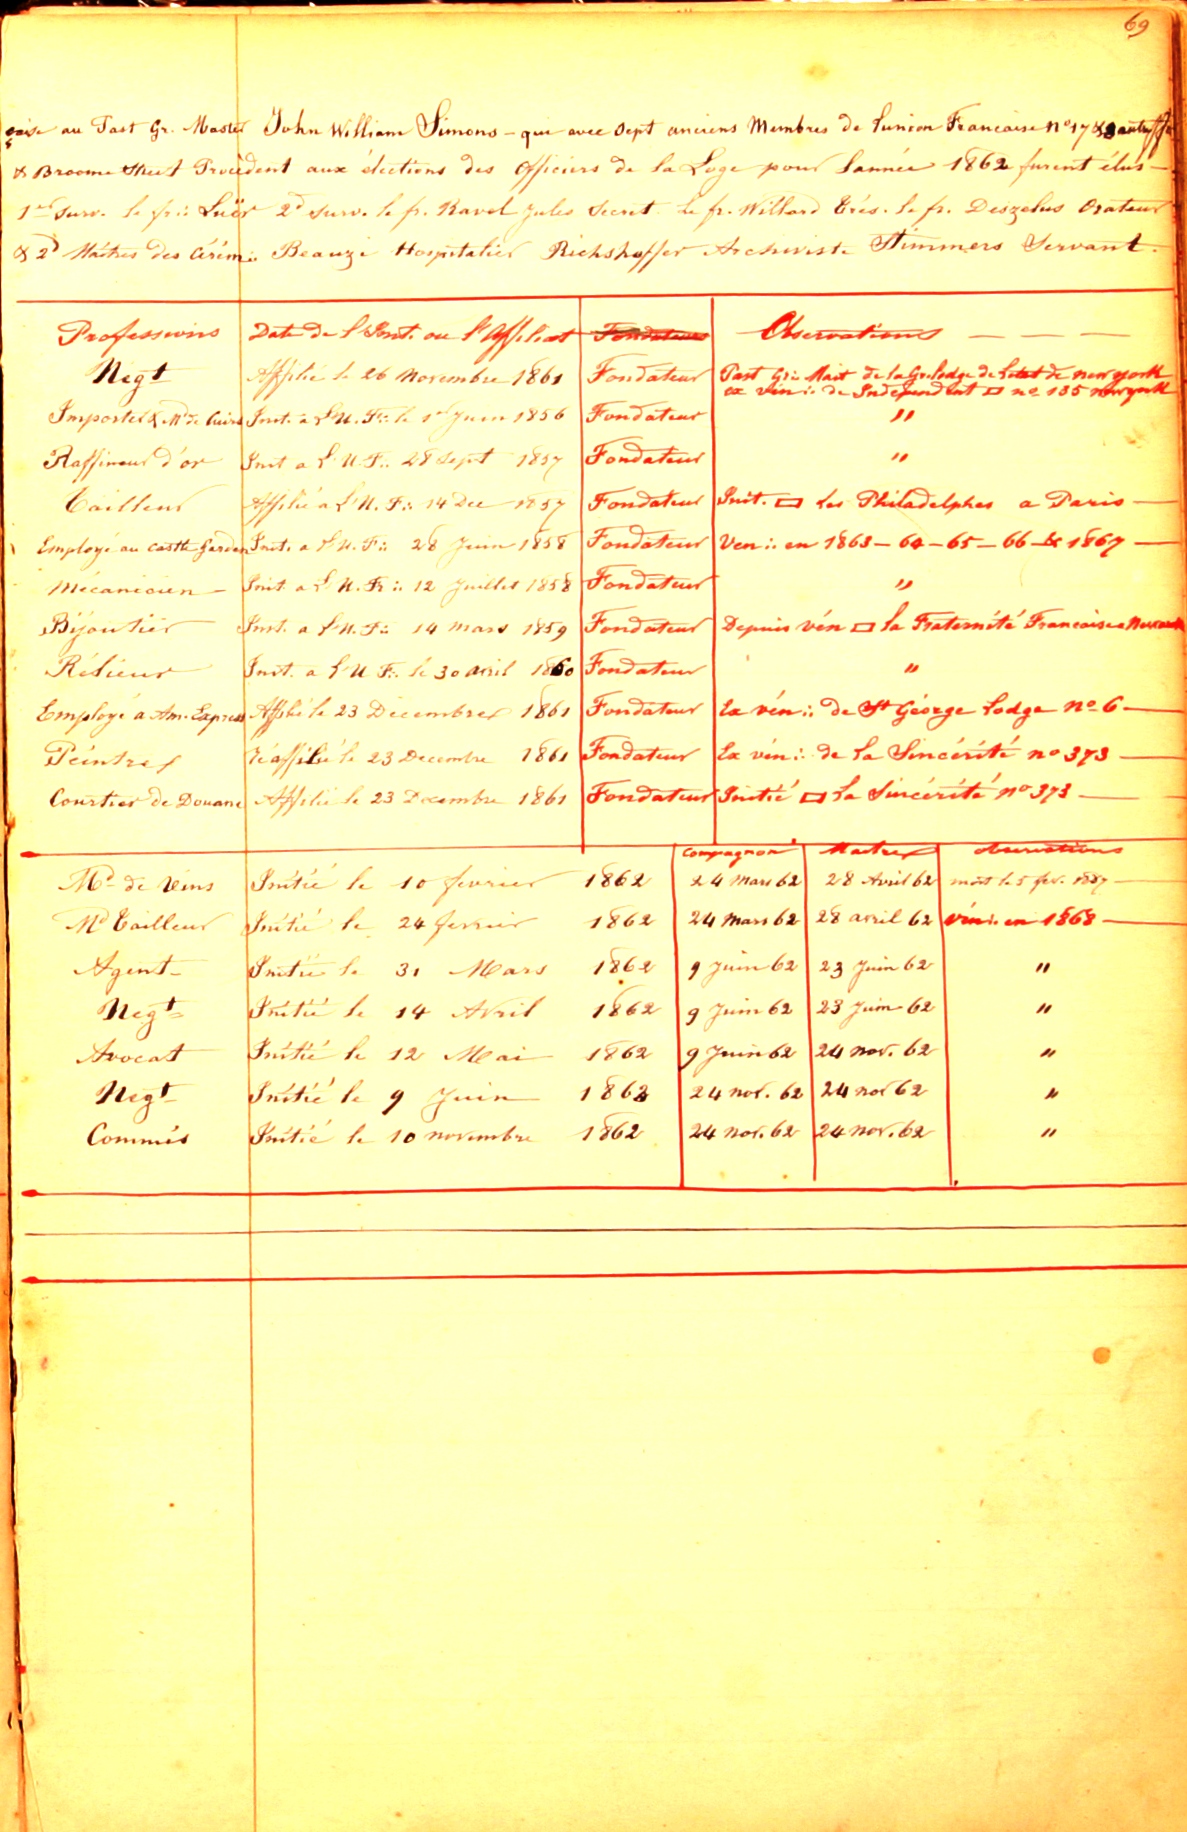 69
çaise au Past Gr. Master John William Simons - qui avec sept anciens Membres de lunion Francaise No 17 &
& Broome Street Procèdent aux élections des Officiers de la Loge pour lannée 1862 furent élus
1er Surv. le fr∴ Luër 2d Surv. le fr. Ravel Jules Secret. le fr. Willard Trés. le fr. Deszelus Orateur
& 2d Maitres des Cérém∴ Beauzé Hospitalier Richshoffer Archiviste Stimmers Servant.
Professions Date de l'Init. ou l'Affiliat Fondateurs Observations
Negt Affilié le 26 Novembre 1861 Fondateur Past Gr∴ Mait de la Gr. lodge de letat de new york
ex Vén∴ de Independent ▭ no 185 new york
Importer & Md de Cuirs Init. a l'U. F∴ le 1er Juin 1856 Fondateur "
Raffineur d'or Init a l'U. F∴ 28 Sept 1857 Fondateur "
Tailleur Affilié a l'U. F∴ 14 Dec 1857 Fondateur Init. ▭ les Philadelphes a Paris
Employé au castle garden Init. a l'U. F∴ 28 Juin 1858 Fondateur Ven∴ en 1863 - 64 - 65 - 66 - & 1867
Mécanicien Init a l'U. Fr∴ 12 Juillet 1858 Fondateur "
Bijoutier Init. a l'U. F∴ 14 mars 1859 Fondateur Depuis vén ▭ la Fraternité Francaise a Newark
Rélieur Init. a l'U F∴ le 30 avril 1860 Fondateur "
Employé a Am. Express Affilié le 23 Décembre 1861 Fondateur Ex vén∴ de St George Lodge no 6
Peintre Réaffilié le 23 Decembre 1861 Fondateur Ex vén∴ de la Sincérité no 373
Courtier de Douane Affilié le 23 Decembre 1861 Fondateur Initié ▭ la Sincérité no 373
Compagnon Maitre observations
Md de vins Initié le 10 fevrier 1862 24 mars 62 28 Avril 62 mort le 5 fev. 1887
Md Tailleur Initié le 24 fevrier 1862 24 mars 62 28 avril 62 vén∴ en 1868
Agent Initié le 31 Mars 1862 9 Juin 62 23 Juin 62 "
Negt Initié le 14 Avril 1862 9 Juin 62 23 Juin 62 "
Avocat Initié le 12 Mai 1862 9 Juin 62 24 nov. 62 "
Negt Initié le 9 Juin 1862 24 nov. 62 24 nov 62 "
Commis Initié le 10 novembre 1862 24 nov. 62 24 nov. 62 "